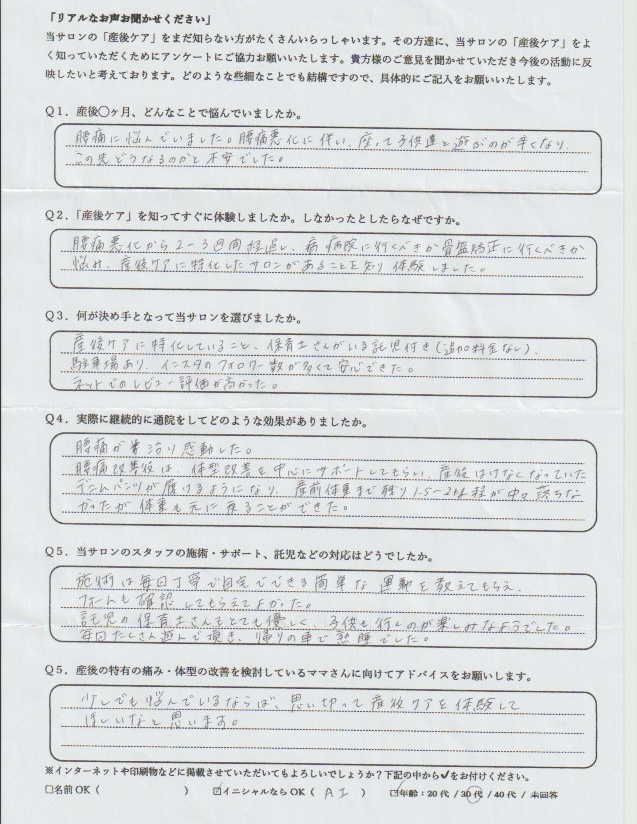 「リアルなお声お聞かせください」
当サロンの「産後ケア」をまだ知らない方がたくさんいらっしゃいます。その方達に、当サロンの「産後ケア」をよ
く知っていただくためにアンケートにご協力お願いいたします。貴方様のご意見を聞かせていただき今後の活動に反
映したいと考えております。どのような些細なことでも結構ですので、具体的にご記入をお願いいたします。
Q1．産後〇ヶ月、どんなことで悩んでいましたか。
腰痛に悩んでいました。腰痛悪化に伴い、座って子供達と遊ぶのが辛くなり、
この先どうなるのかと不安でした。
Q2．「産後ケア」を知ってすぐに体験しましたか。しなかったとしたらなぜですか。
腰痛悪化から2-3週間経過し、病院に行くべきか骨盤矯正に行くべきか
悩み、産後ケアに特化したサロンがあることを知り体験しました。
Q3．何が決め手となって当サロンを選びましたか。
産後ケアに特化していること、保育士さんがいる託児付き(追加料金なし)、
駐車場あり、インスタのフォロワー数が多くて安心できた。
ネットでのレビュー評価が高かった。
Q4．実際に継続的に通院をしてどのような効果がありましたか。
腰痛が 治り感動した。
腰痛改善後は、体型改善を中心にサポートしてもらい、産後はけなくなっていた
デニムパンツが履けるようになり、産前体重まで残り1.5-2kg程が中々落ちな
かったが体重も元に戻ることができた。
Q5．当サロンのスタッフの施術・サポート、託児などの対応はどうでしたか。
施術は毎回丁寧で自宅でできる簡単な運動を教えてもらえ、
フォームも確認してもらえてよかった。
託児の保育士さんもとても優しく、子供も行くのが楽しみなようでした。
毎回たくさん遊んで頂き、帰りの車で熟睡でした。
Q5．産後の特有の痛み・体型の改善を検討しているママさんに向けてアドバイスをお願いします。
少しでも悩んでいるならば、思い切って産後ケアを体験して
ほしいなと思います。
※インターネットや印刷物などに掲載させていただいてもよろしいでしょうか？下記の中から✓をお付けください。
□名前OK（　　　　　　　） ☑イニシャルならOK（ A I ） ☑年齢：20代 / 30代 / 40代 / 未回答